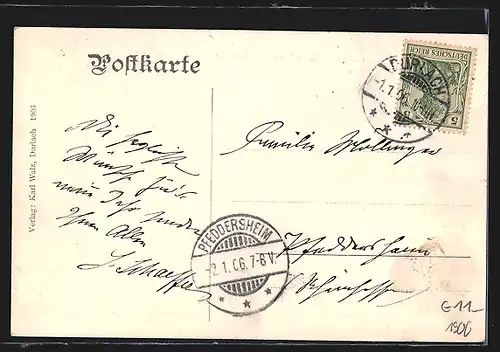 Postkarte
DEUTSCHES REICH
5
DURLACH
-1.1.06.
Verlag: Karl Walz, Durlach 1905
Die herzlichsten
Wünsche für's
neue Jahr senden
Ihnen Allen
Familie Wollinger
PFEDDERSHEIM
-2.1.06.7-8V.
Pfeddersheim
Rheinhessen
€11-
1906